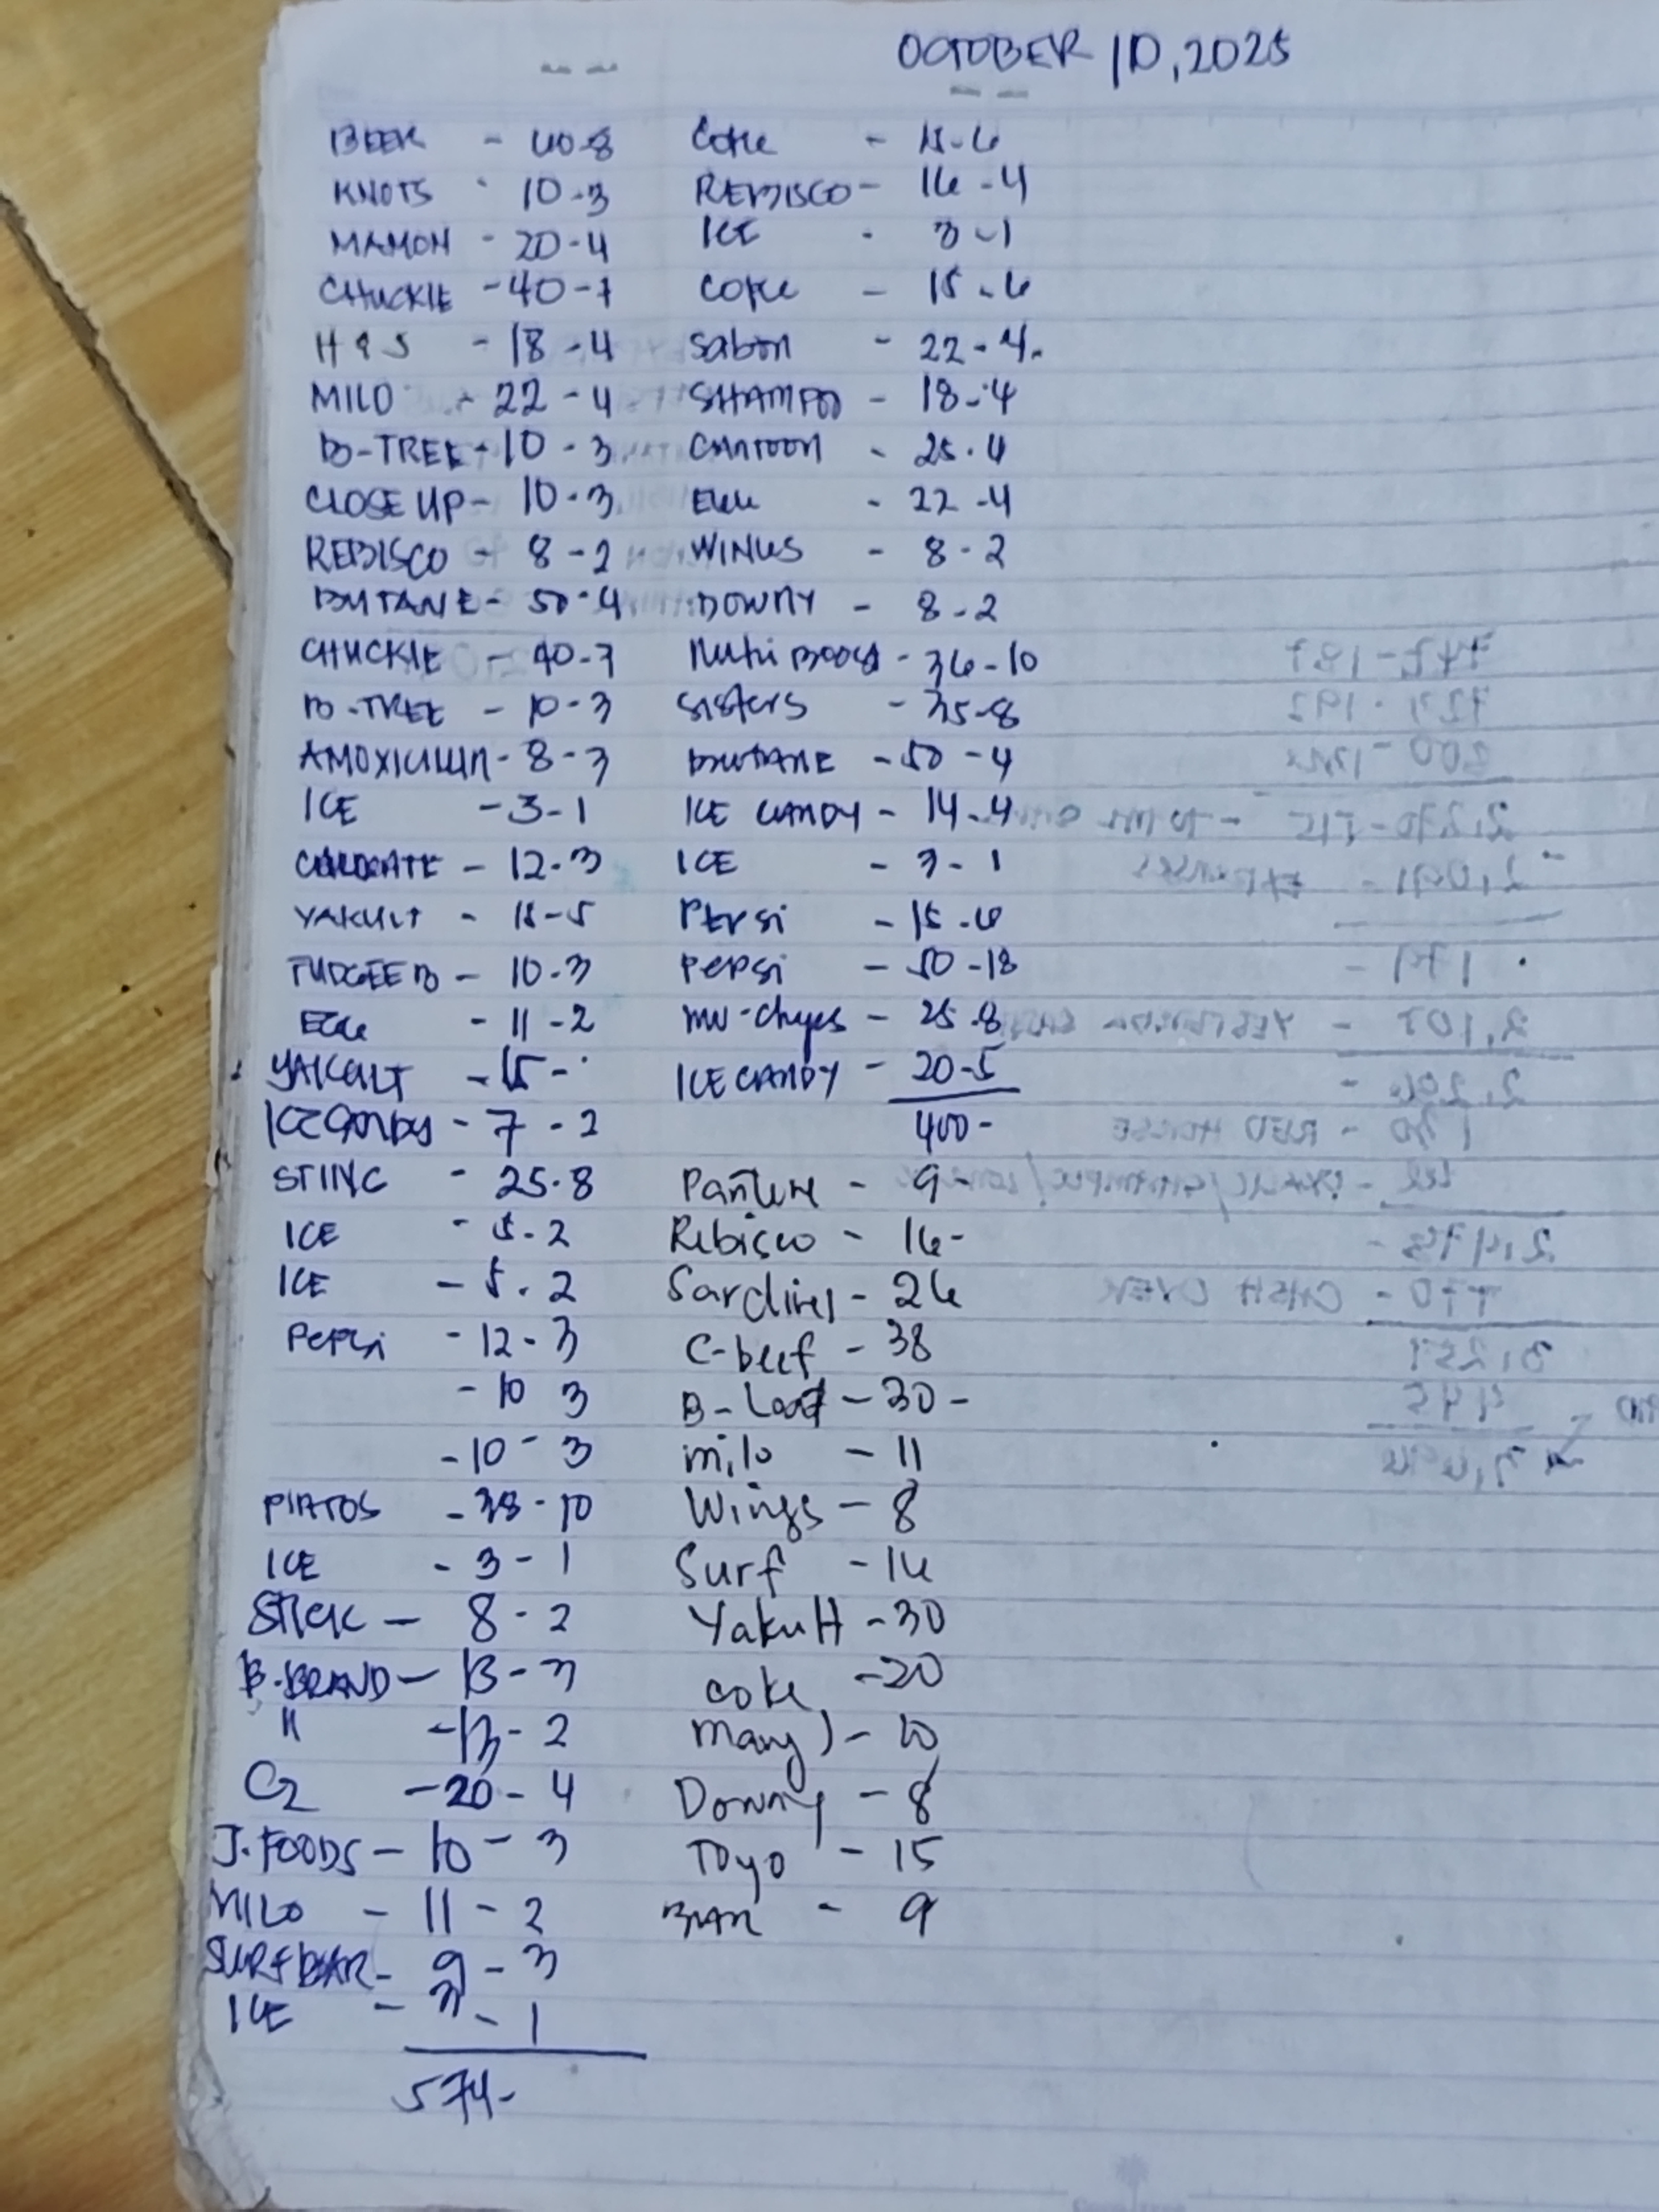 OCTOBER 10, 2025
BEER - 40-8
KNOTS - 10-3
MAMON - 20-4
CHUCKIE - 40-7
H&S - 18-4
MILO - 22-4
B-TREE - 10-3
CLOSE UP - 10-3
REBISCO - 8-2
BUTANE - 50-4
CHUCKIE - 40-7
B-TREE - 10-3
AMOXICILLIN - 8-3
ICE - 3-1
COLGATE - 12-3
YAKULT - 15-5
FUDGEE B - 10-3
EGG - 11-2
YAKULT - 15 -
ICE CANDY - 7 - 2
STING - 25-8
ICE - 5-2
ICE - 5-2
PEPSI - 12-3
- 10 3
- 10 - 3
PIATOS - 38-10
ICE - 3-1
STICK - 8-2
B-BRAND - 13-3
" - 13-2
C2 - 20-4
J.FOODS - 10-3
MILO - 11-2
SURF BAR - 9-3
ICE - 3-1
574-
Coke - 15-6
REBISCO - 16-4
ICE - 3-1
COKE - 15-6
Sabon - 22-4
SHAMPOO - 18-4
CANTOON - 25-4
EGG - 22-4
WINGS - 8-2
DOWNY - 8-2
Nutri Boost - 36-10
Sisters - 35-8
BUTANE - 50-4
ICE CANDY - 14-4
ICE - 3-1
PEPSI - 15-6
PEPSI - 50-18
- 25-8
ICE CANDY - 20-5
400-
Pantene - 9-
Rebisco - 16-
Sardines - 26
C-beef - 38
B-Loaf - 30-
milo - 11
Wings - 8
Surf - 16
Yakult - 30
coke - 20
- 10
Downy - 8
Toyo - 15
BEAR - 9